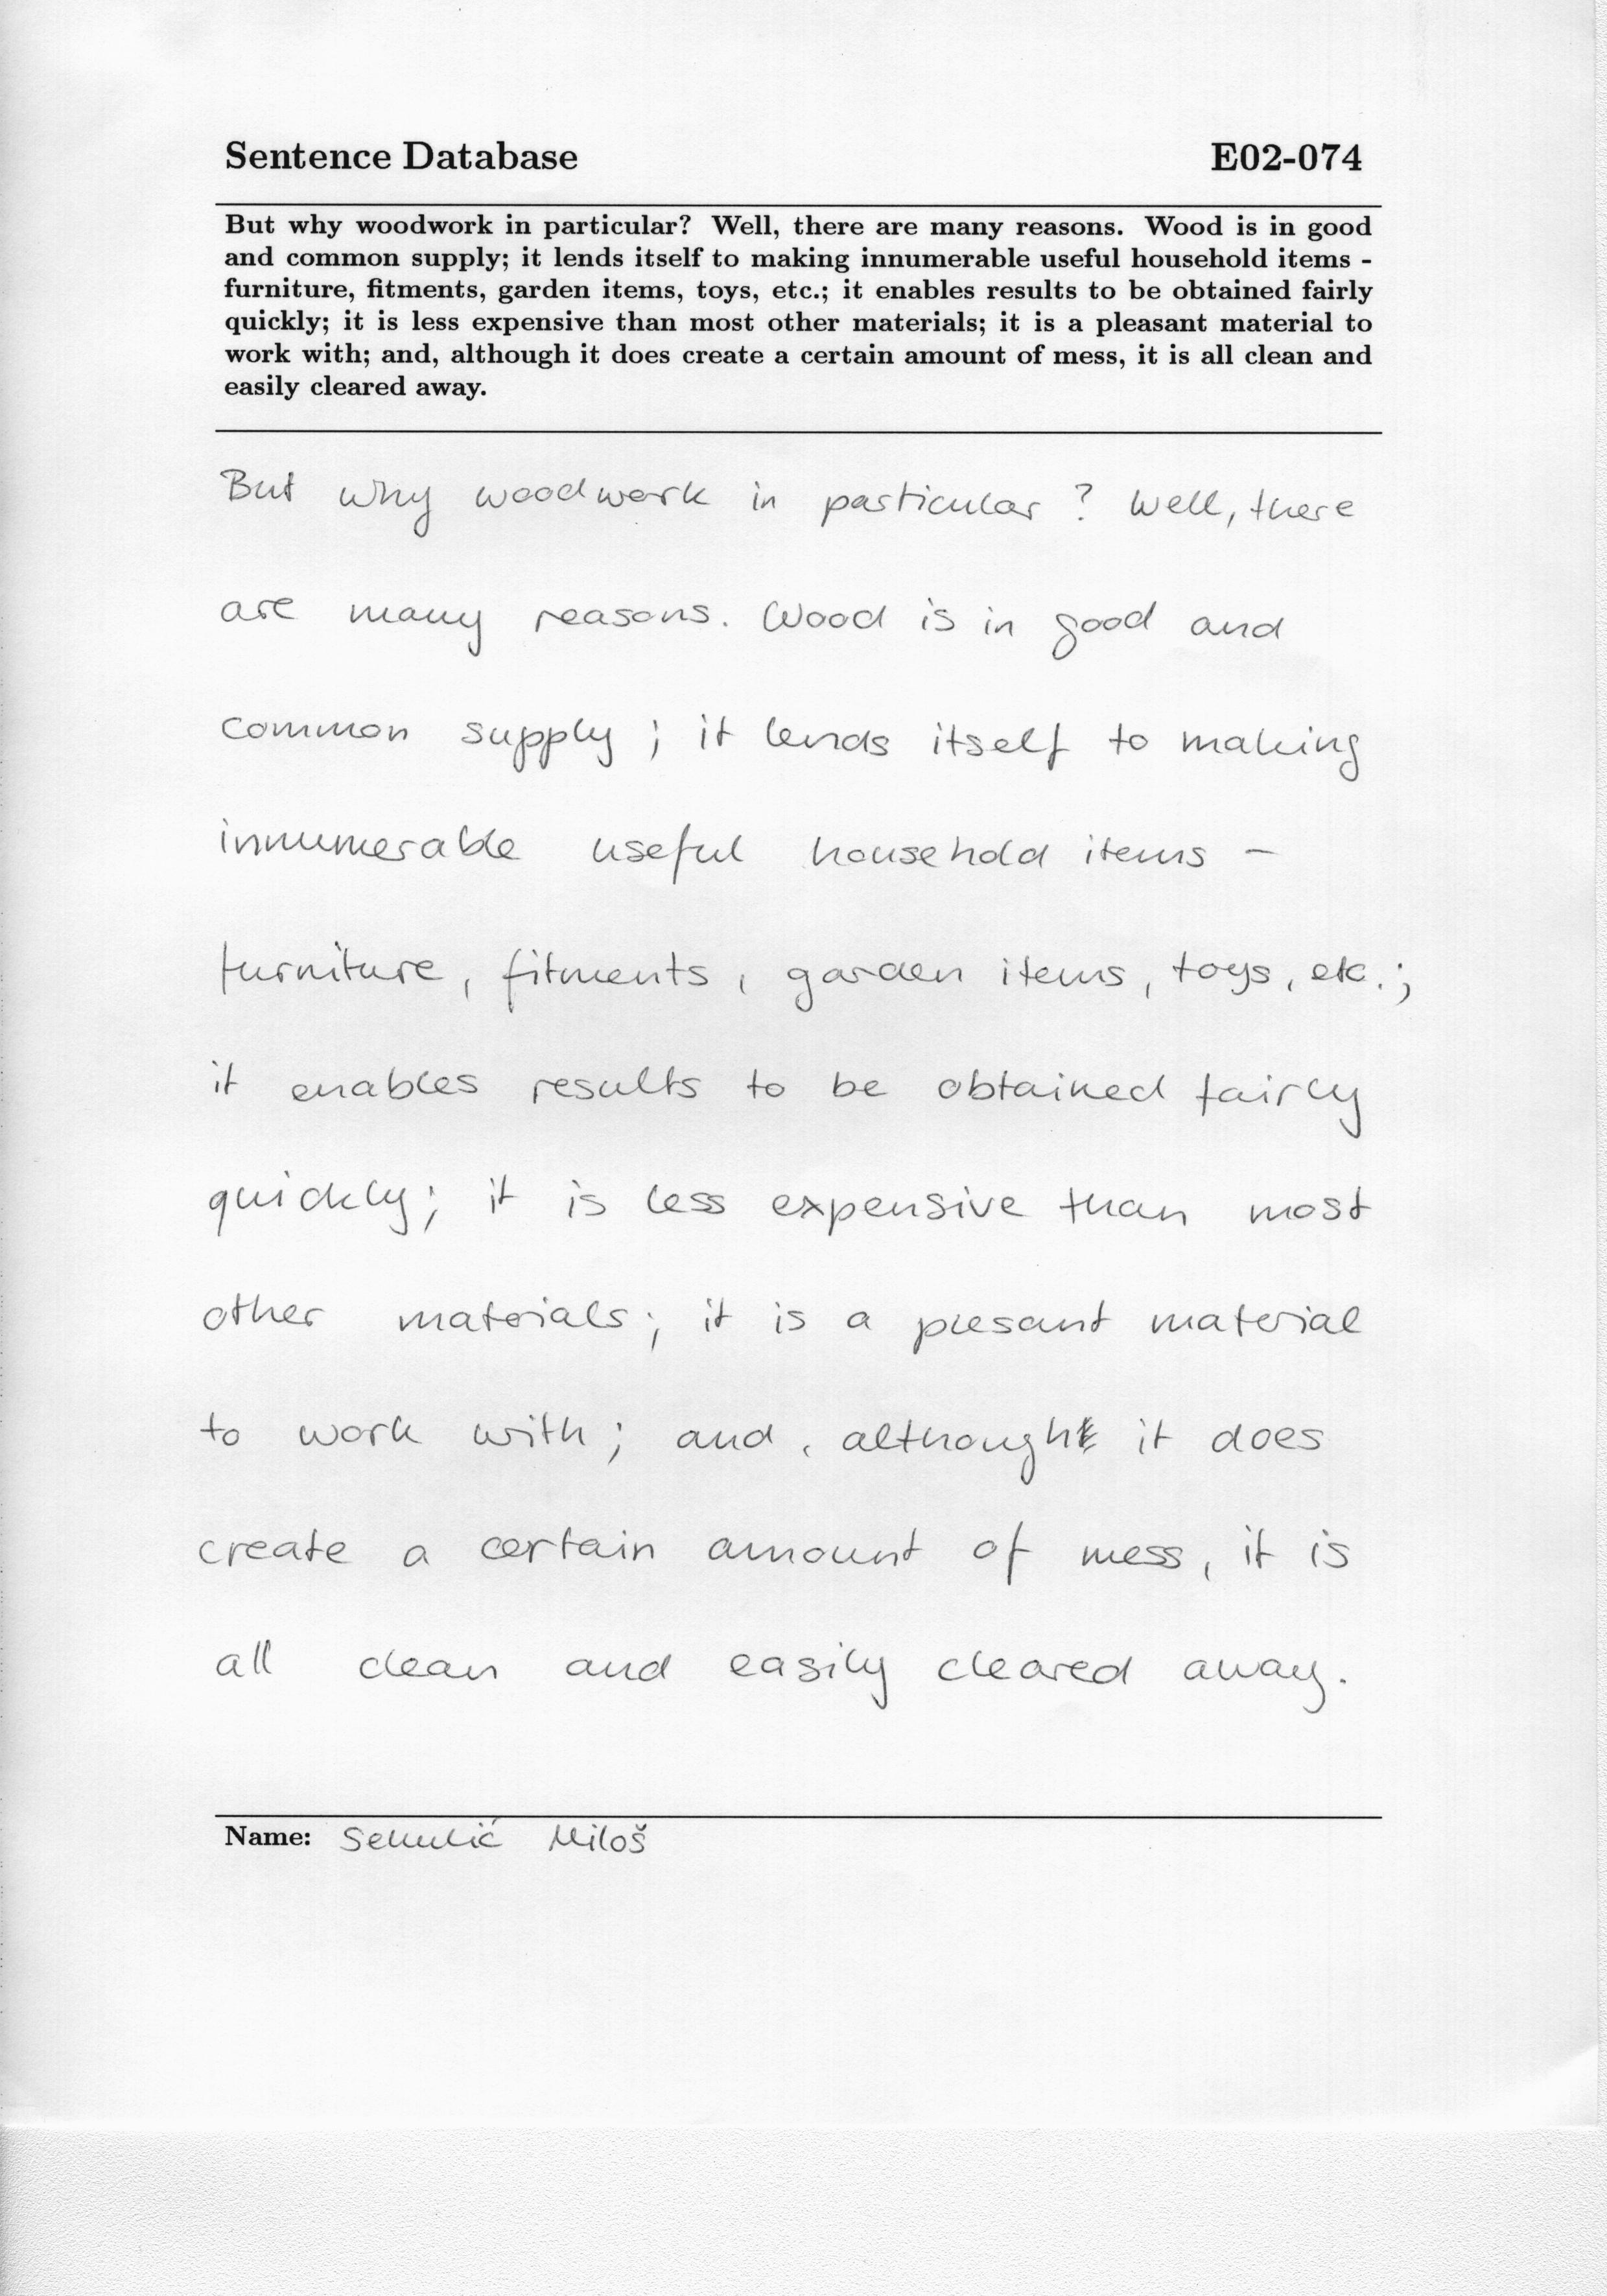 Sentence Database E02-074
But why woodwork in particular? Well, there are many reasons. Wood is in good
and common supply; it lends itself to making innumerable useful household items -
furniture, fitments, garden items, toys, etc.; it enables results to be obtained fairly
quickly; it is less expensive than most other materials; it is a pleasant material to
work with; and, although it does create a certain amount of mess, it is all clean and
easily cleared away.
But why woodwork in particular? Well, there
are many reasons. Wood is in good and
common supply; it lends itself to making
innumerable useful household items -
furniture, fitments, garden items, toys, etc.;
it enables results to be obtained fairly
quickly; it is less expensive than most
other materials; it is a plesant material
to work with; and, although it does
create a certain amount of mess, it is
all clean and easily cleared away.
Name: Sekulić Miloš